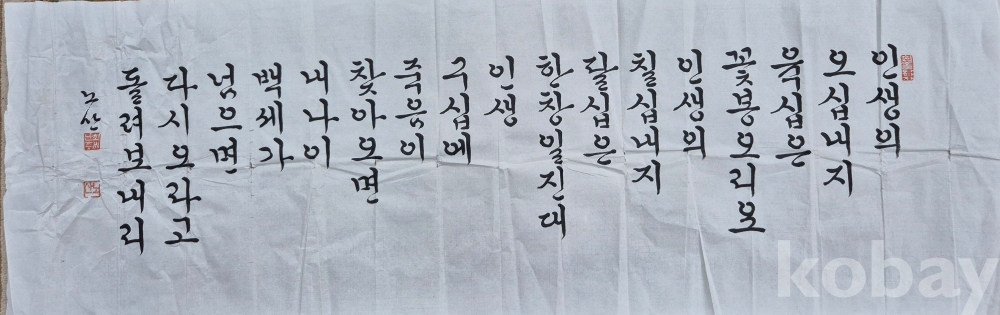 인생의
오십내지
육십은
꽃봉오리오
인생의
칠십내지
팔십은
한창일진대
인생
구십에
죽음이
찾아오면
내나이
백세가
넘으면
다시오라고
돌려보내리
노산
kobay